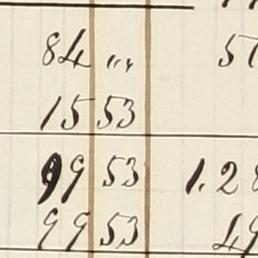 84 "" 5
15 53
99 53 1.28
99 53 49